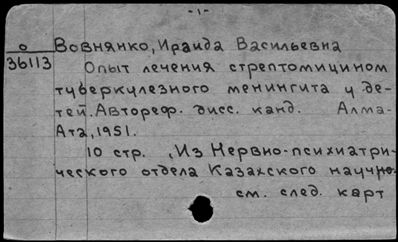 -1-
о Вовнянко, Ираида Васильевна
36113
Опыт лечения стрептомицином
туберкулезного менингита у де-
тей. Автореф. дисс. канд. Алма-
Ата, 1951.
10 стр. , Из Нервно-психиатри-
ческого отдела Казахского научно.
см. след. карт